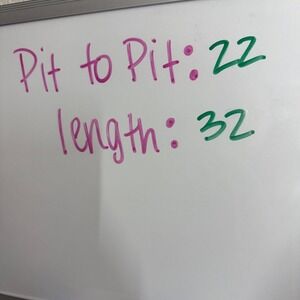 Pit to Pit: 22
length: 32